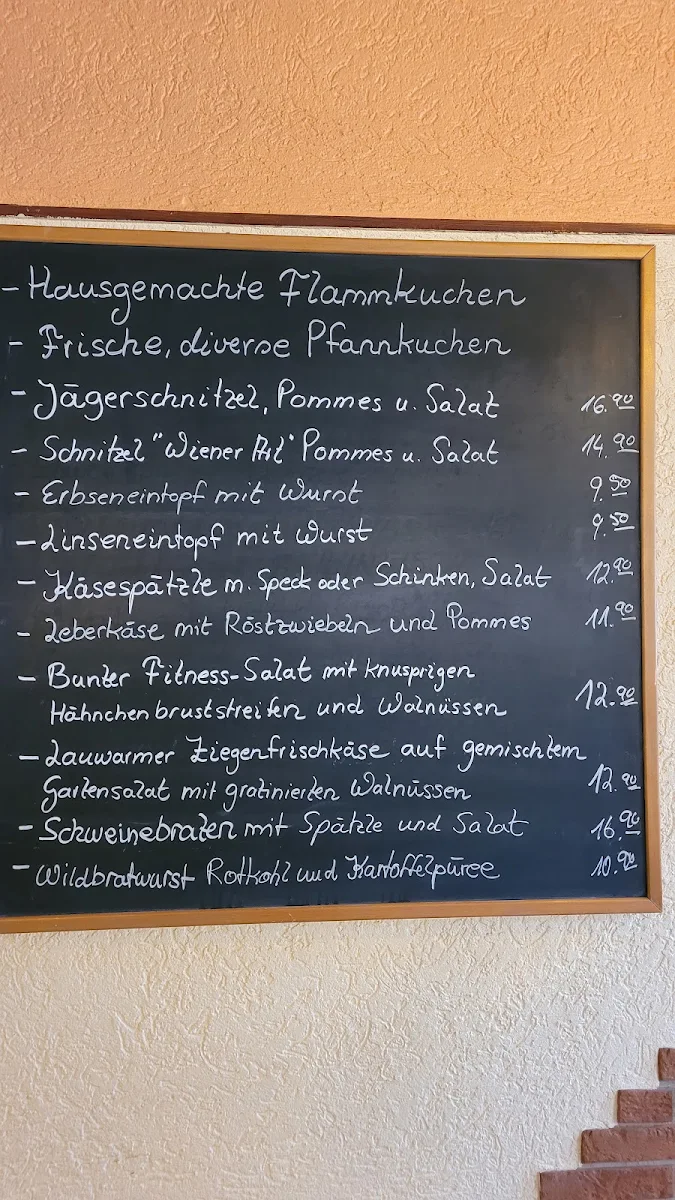 - Hausgemachte Flammkuchen
- Frische, diverse Pfannkuchen
- Jägerschnitzel, Pommes u. Salat 16.90
- Schnitzel "Wiener Art" Pommes u. Salat 14.90
- Erbseneintopf mit Wurst 9.50
- Linseneintopf mit Wurst 9.50
- Käsespätzle m. Speck oder Schinken, Salat 12.90
- Leberkäse mit Röstzwiebeln und Pommes 11.90
- Bunter Fitness-Salat mit knusprigen
Hähnchenbruststreifen und Walnüssen 12.90
- Lauwarmer Ziegenfrischkäse auf gemischtem
Gartensalat mit gratinierten Walnüssen 12.90
- Schweinebraten mit Spätzle und Salat 16.90
- Wildbratwurst Rotkohl und Kartoffelpüree 10.90